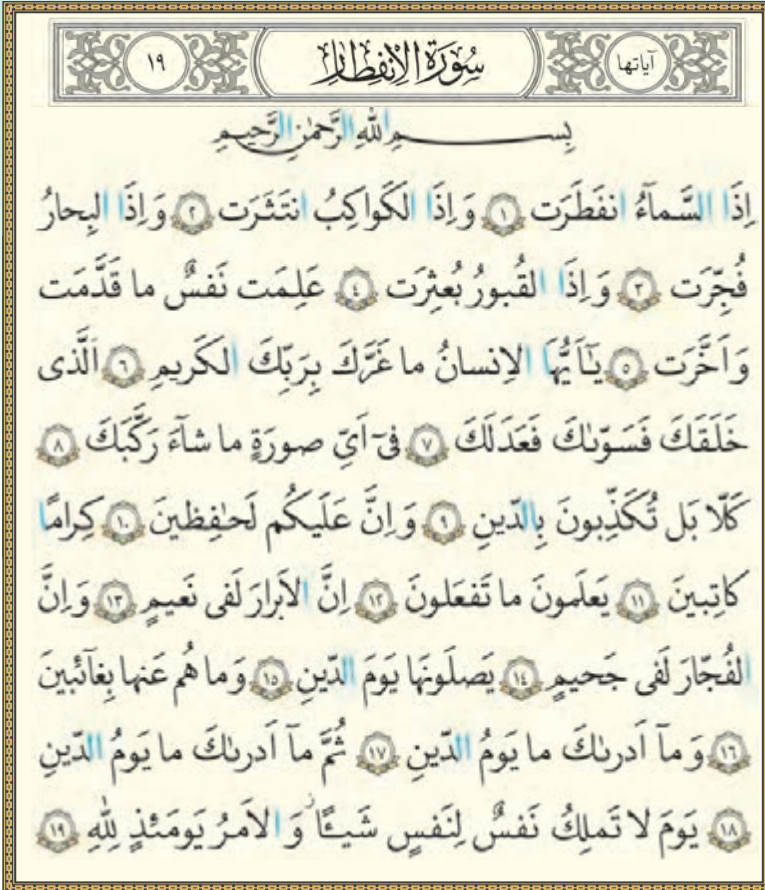 آیاتها سُورَةُ الْاِنْفِطَارِ ١٩
بِسمِ اللّٰهِ الرَّحمٰنِ الرَّحیمِ
اِذَا السَّمآءُ انفَطَرَت ﴿١﴾ وَ اِذَا الكَواكِبُ انتَثَرَت ﴿٢﴾ وَ اِذَا البِحارُ
فُجِّرَت ﴿٣﴾ وَ اِذَا القُبورُ بُعثِرَت ﴿٤﴾ عَلِمَت نَفسٌ ما قَدَّمَت
وَ اَخَّرَت ﴿٥﴾ یٰٓاَیُّهَا الاِنسانُ ما غَرَّكَ بِرَبِّكَ الكَریمِ ﴿٦﴾ اَلَّذی
خَلَقَكَ فَسَوّىٰكَ فَعَدَلَكَ ﴿٧﴾ فیٓ اَیِّ صورَةٍ ما شآءَ رَكَّبَكَ ﴿٨﴾
كَلّا بَل تُكَذِّبونَ بِالدّینِ ﴿٩﴾ وَ اِنَّ عَلَیكُم لَحٰفِظینَ ﴿١٠﴾ كِرامًا
كاتِبینَ ﴿١١﴾ یَعلَمونَ ما تَفعَلونَ ﴿١٢﴾ اِنَّ الاَبرارَ لَفی نَعیمٍ ﴿١٣﴾ وَ اِنَّ
الفُجّارَ لَفی جَحیمٍ ﴿١٤﴾ یَصلَونَها یَومَ الدّینِ ﴿١٥﴾ وَ ما هُم عَنها بِغآئبینَ
﴿١٦﴾ وَ مآ اَدرىٰكَ ما یَومُ الدّینِ ﴿١٧﴾ ثُمَّ مآ اَدرىٰكَ ما یَومُ الدّینِ
﴿١٨﴾ یَومَ لا تَملِكُ نَفسٌ لِنَفسٍ شَیـًٔا وَ الاَمرُ یَومَئذٍ لِلّٰهِ ﴿١٩﴾